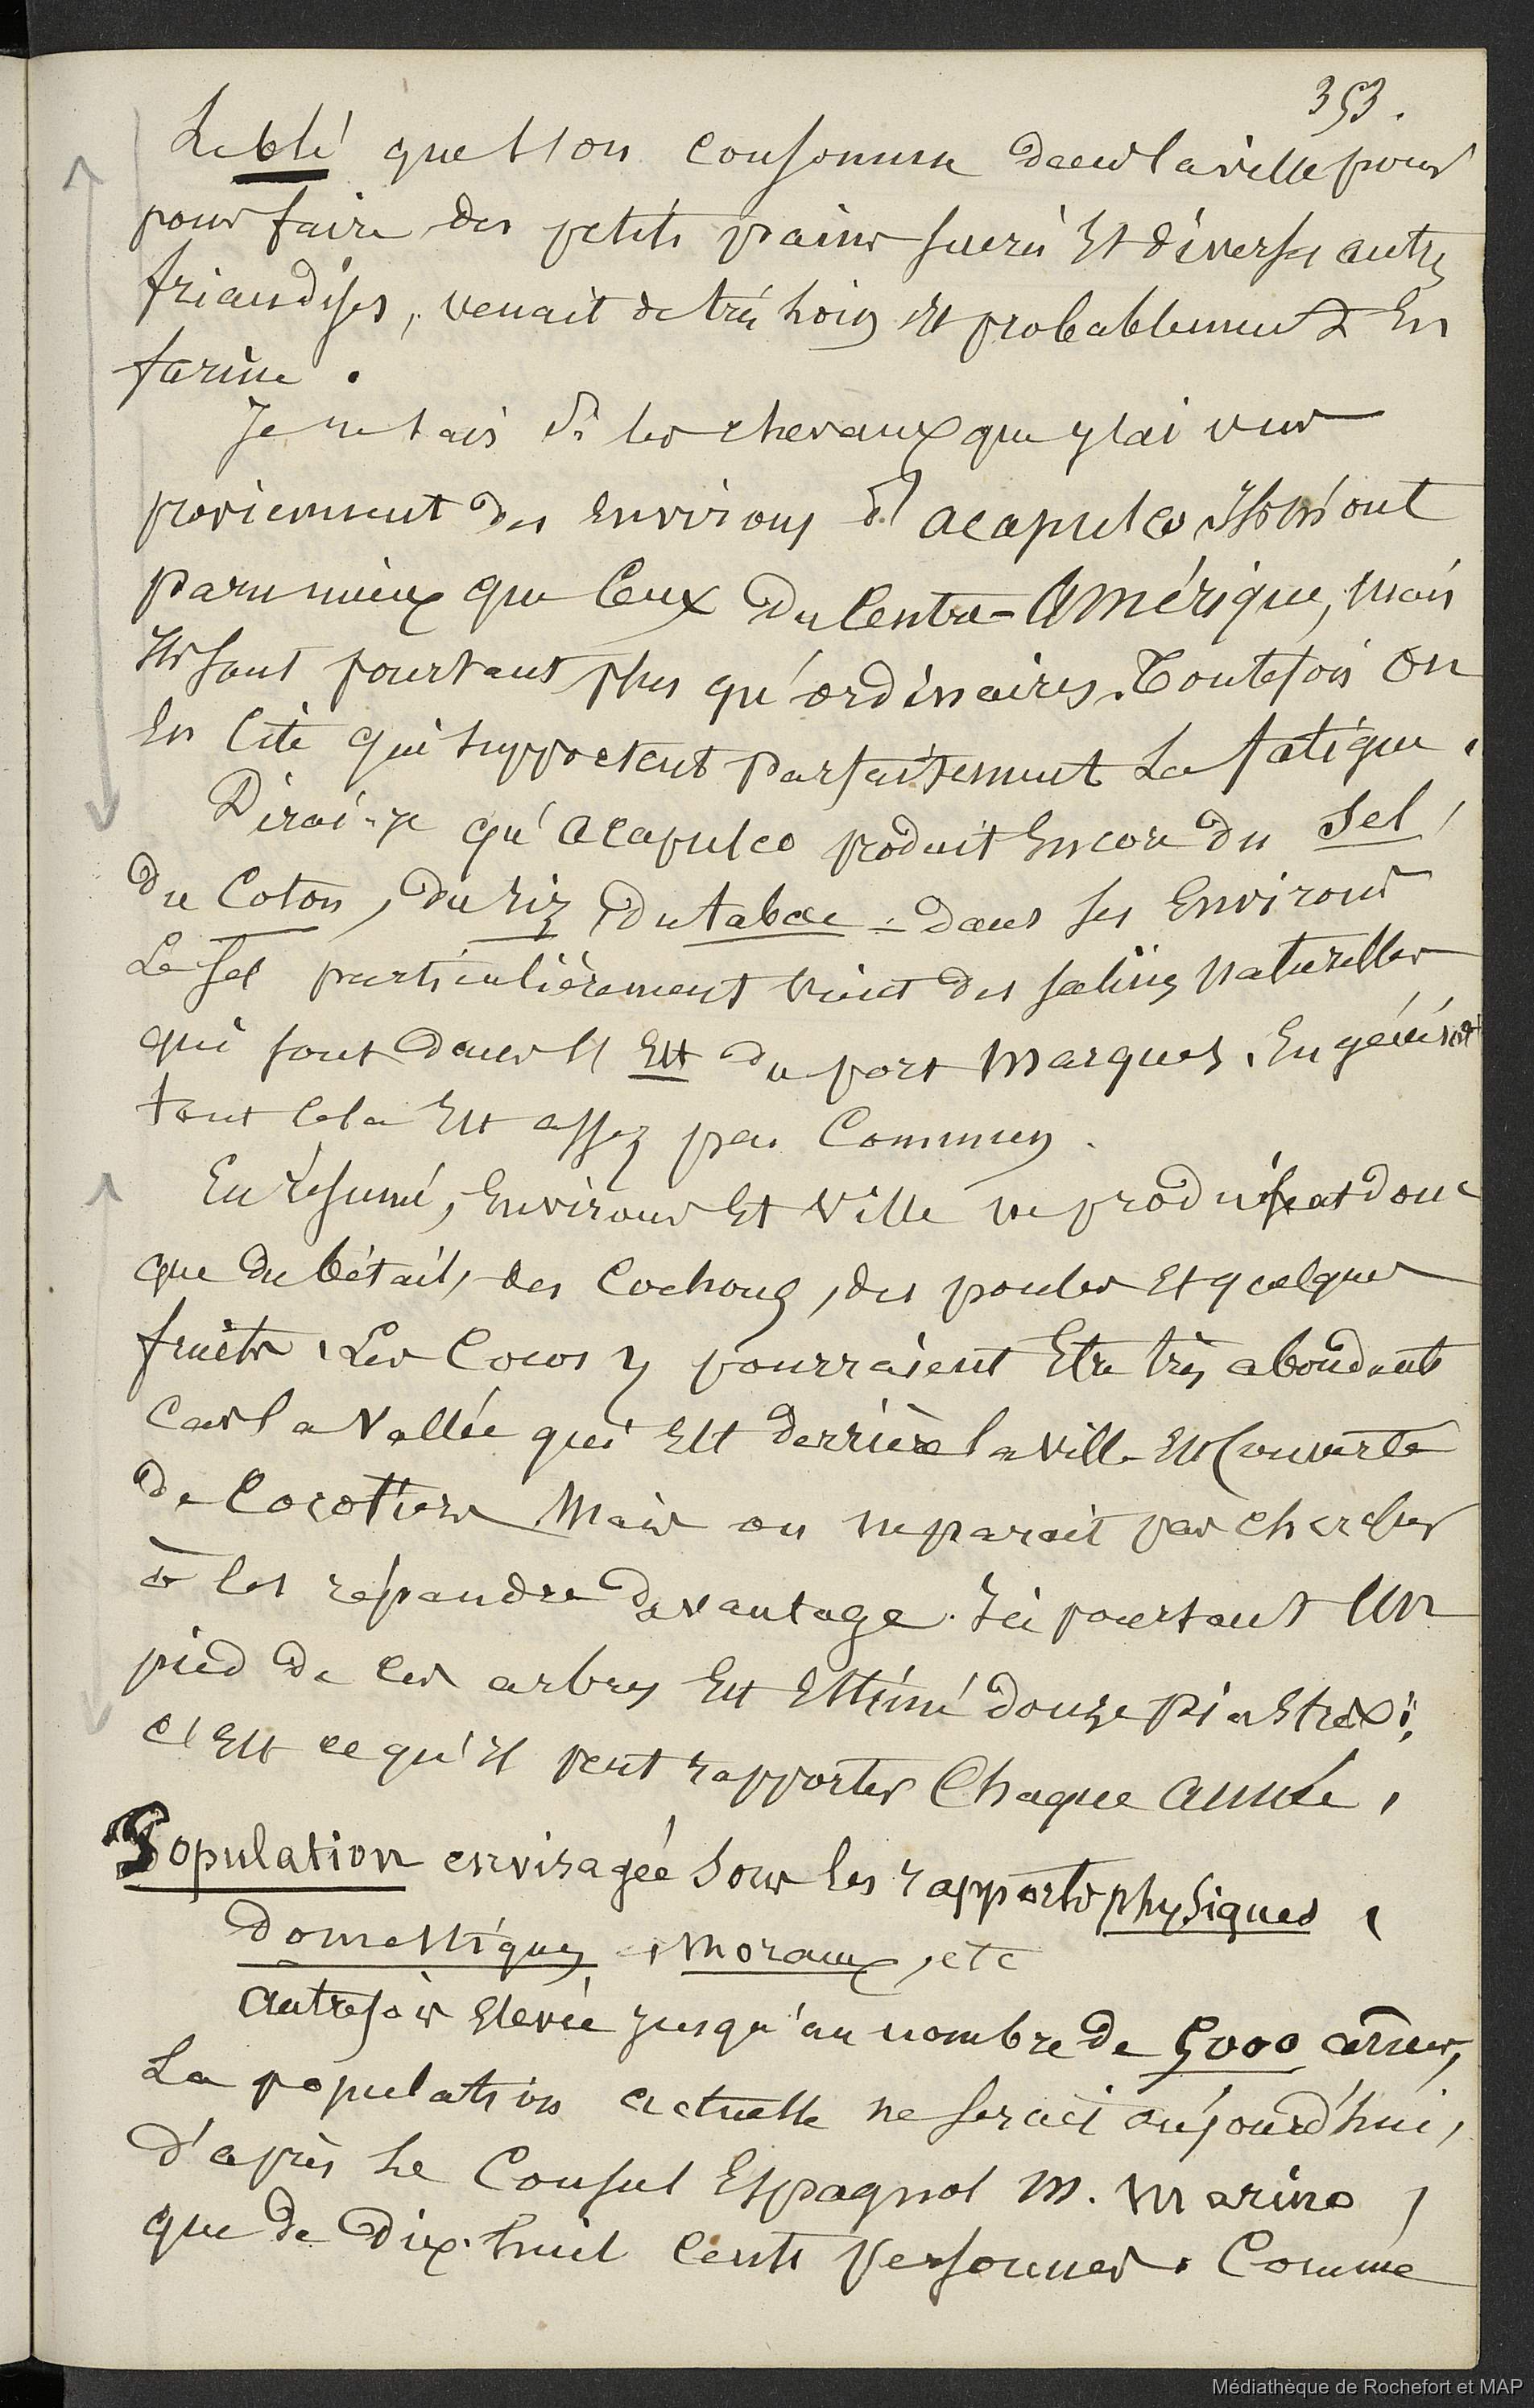 353.
Le blé que l'on consomme dans la ville pour
pour faire des petits pains sucrés et diverses autres
friandises, venait de très loin et probablement en
farine.
Je ne sais si les chevaux que j'ai vus
proviennent des environs d'acapulco Ils m'ont
paru mieux que ceux du Centre-Amérique, mais
Ils sont pourtant plus qu'ordinaires. Toutefois on
en cite qui supportent parfaitement la fatigue.
Dirai-je qu'acapulco produit encore du Sel,
du Coton, du riz, du tabac - dans ses Environs
Le sel particulièrement vient des salines naturelles
qui sont dans l'Est du port Marques. En général
tout cela est assez peu Commun.
En résumé, Environs et Ville ne produisent donc
que du bétail, des Cochons, des poules et quelques
fruits. Les Cocos y pourraient être très abondants
car la Vallée qui est derrière la ville est couverte
de Cocotiers Mais on ne parait pas chercher
à les répandre davantage. Ici pourtant Un
pied de ces arbres est estimé douze piastres;
c'est ce qu'il peut rapporter Chaque année.
Population envisagée sous les rapports physiques,
domestiques, moraux, etc
autrefois élevée jusqu'au nombre de 5000 âmes,
La population actuelle ne serait aujourd'hui,
d'après le Consul Espagnol M. Marino,
que de Dix-huit cents personnes. Comme
Médiathèque de Rochefort et MAP